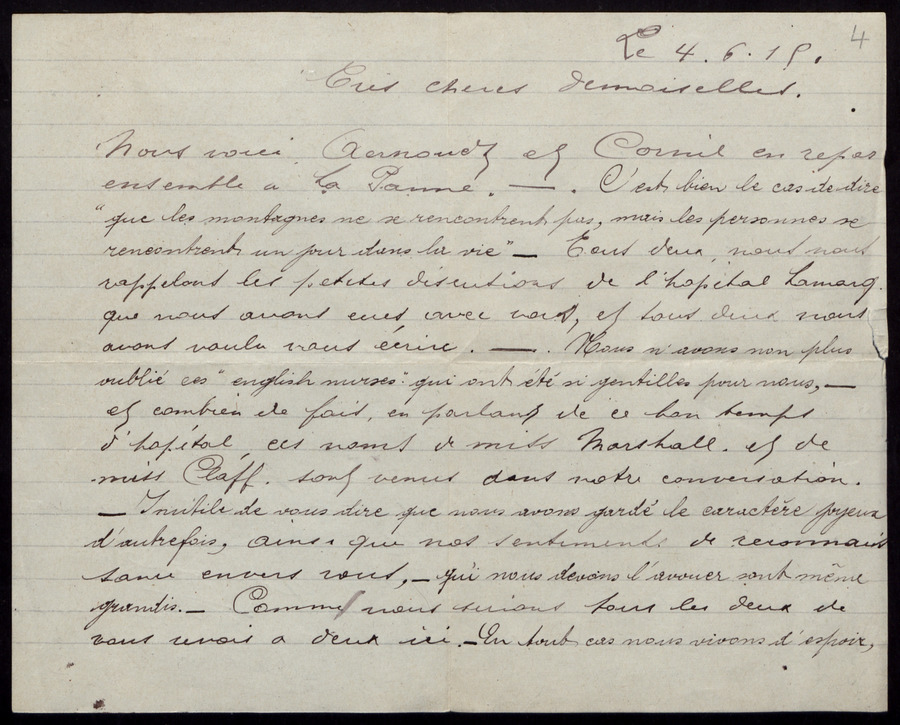 4
Le 4.6.15.
Très cheres demoiselles.
Nous voici Aernoudt et Cornil en repos
ensemble a La Panne. — . C'est bien le cas de dire
"que les montagnes ne se rencontrent pas, mais les personnes se
rencontrent un jour dans la vie" — Tous deux, nous nous
rappelons les petites discutions de l'hopital Lamarq.
que nous avons eues avec vous, et tous deux nous
avons voulu vous écrire. — . Nous n'avons non plus
oublié ces "english nurses" qui ont été si gentilles pour nous, —
et combien de fois, en parlant de ce bon temps
d'hopital, ces noms de miss Marshall. et de
miss sont venus dans notre conversation.
— Inutile de vous dire que nous avons gardé le caractère joyeux
d'autrefois, ainsi que nos sentiments de reconnais
sance envers vous, — qui nous devons l'avouer sont même
grandis. — Comme nous serions tous les deux de
vous revoir a deux ici. — En tout cas nous vivons d'espoir,